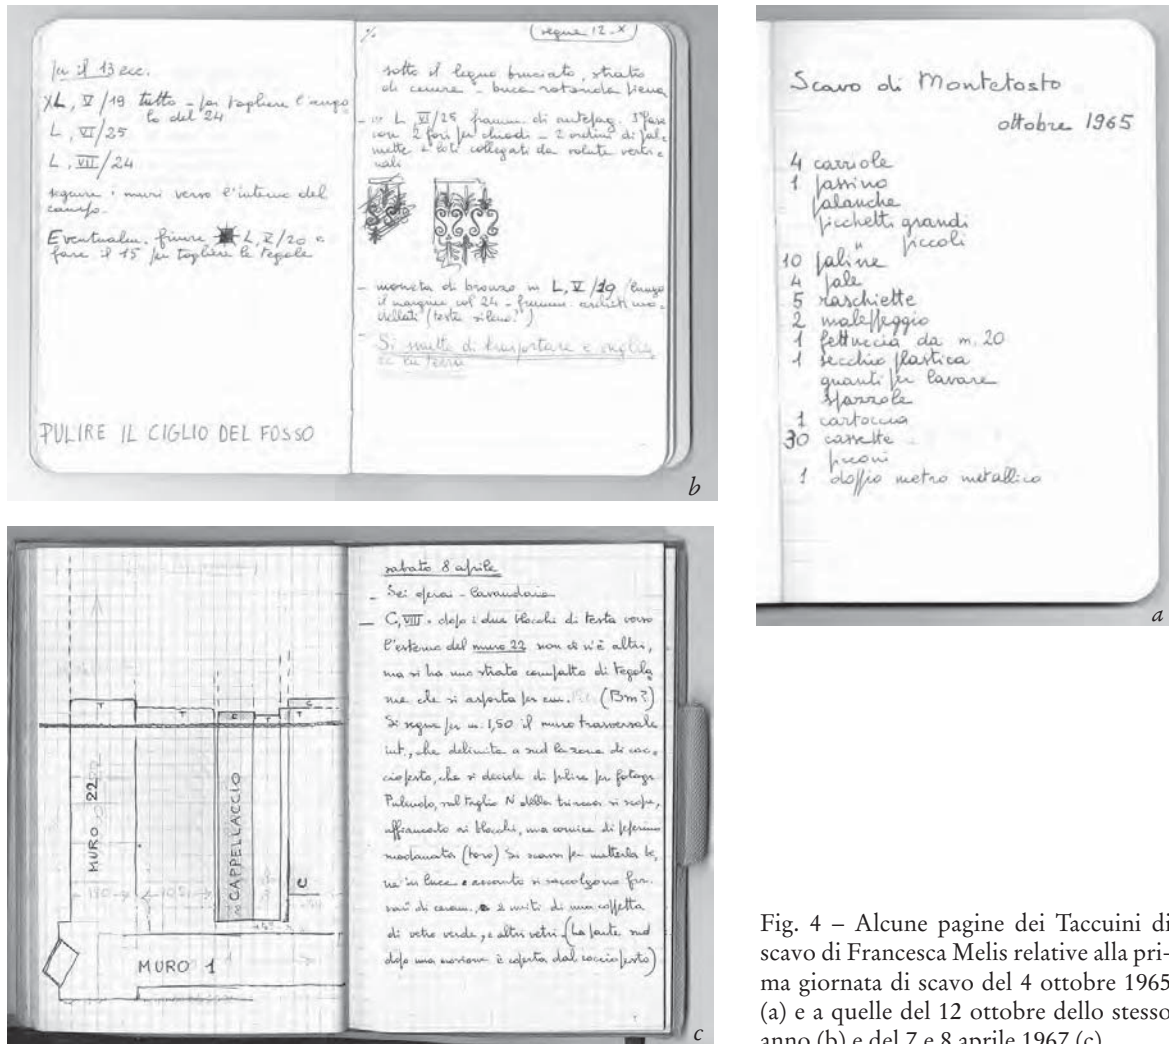 Per il 13 ecc.
XL, V/19 tutto – per togliere l'ango
lo del 24
L, VI/25
L, VII/24
seguire i muri verso l'interno del
campo.
Eventualm. finire L, V/20 e
fare il 15 per togliere le tegole
PULIRE IL CIGLIO DEL FOSSO
%
(segue 12-X)
sotto il legno bruciato, strato
di cenere – buca rotonda piena
– in L VI/25 framm. di antefag. 3ª fase
con 2 fori per chiodi – 2 ordini di pal=
mette e loti collegati da volute verti=
cali
– moneta di bronzo in L, V/19 (lungo
il margine col 24 – framm.
dellati (testa sileno?)
– Si smette di trasportare e
b
Scavo di Montetosto
ottobre 1965
4 carriole
1 passino
palanche
picchetti grandi
" piccoli
10 paline
4 pale
5 raschiette
2 malepeggio
1 fettuccia da m. 20
1 secchio plastica
guanti per lavare
spazzole
1 cartoccia
30 cassette
picconi
1 doppio metro metallico
a
T
T
C
T
T
C
MURO 22
CAPPELLACCIO
C
MURO 1
sabato 8 aprile
– Sei operai – lavandaia
– C, VIII – dopo i due blocchi di testa verso
l'esterno del muro 22 non ce n'è altri,
ma si ha uno strato compatto di tegola
me che si asporta per cm. (Bm?)
Si segue per m. 1,50 il muro trasversale
int., che delimita a sud la zona di coc=
ciopesto, che si decide di pulire per fotogr.
Pulendo, sul taglio N della trincea si scopre,
affiancato ai blocchi, una cornice di peperino
modanata (toro) Si scava per metterla be,
ne in luce e accanto si raccolgono fra.
di ceram., e 2 di una coppetta
di vetro verde, e altri vetri – (La parte sud
dopo una è coperta dal cocciopesto)
c
Fig. 4 – Alcune pagine dei Taccuini di
scavo di Francesca Melis relative alla pri-
ma giornata di scavo del 4 ottobre 1965
(a) e a quelle del 12 ottobre dello stesso
anno (b) e del 7 e 8 aprile 1967 (c).